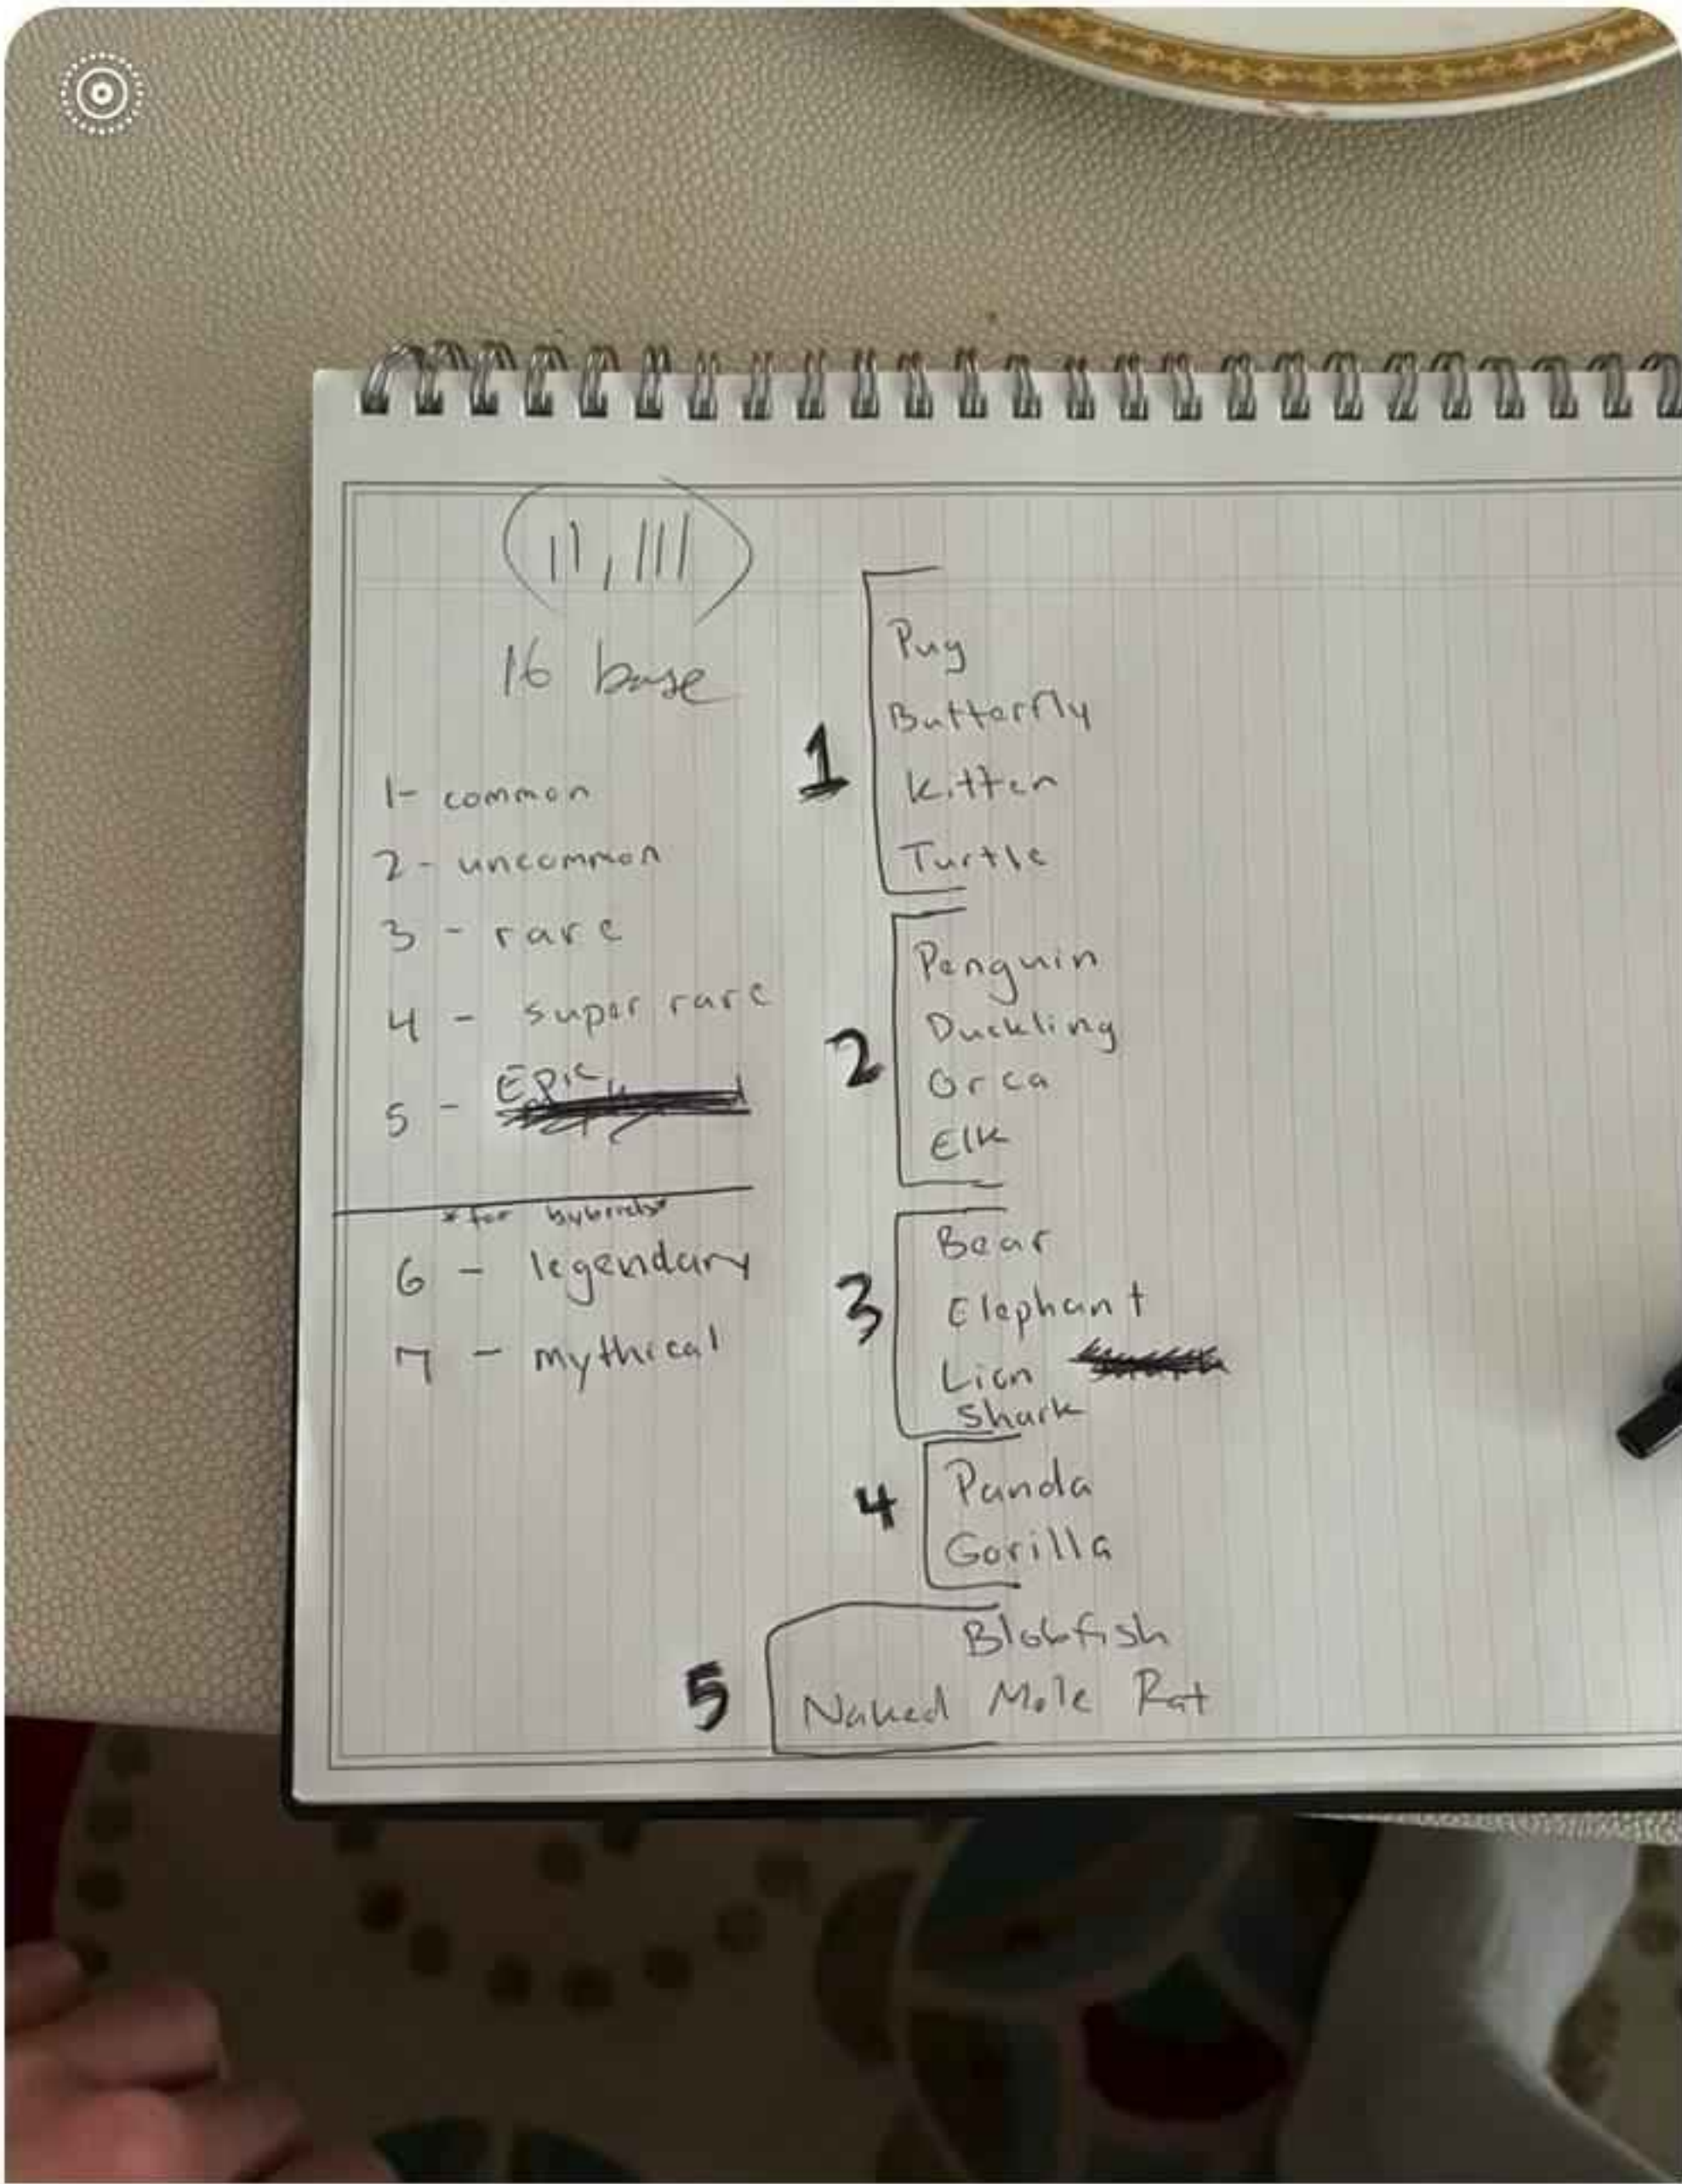 11,111
16 base
1- common
2- uncommon
3 - rare
4 - super rare
5 - Epic
*for hybrids*
6 - legendary
7 - mythical
1
Pug
Butterfly
Kitten
Turtle
2
Penguin
Duckling
Orca
Elk
3
Bear
Elephant
Lion
Shark
4
Panda
Gorilla
5
Blobfish
Naked Mole Rat